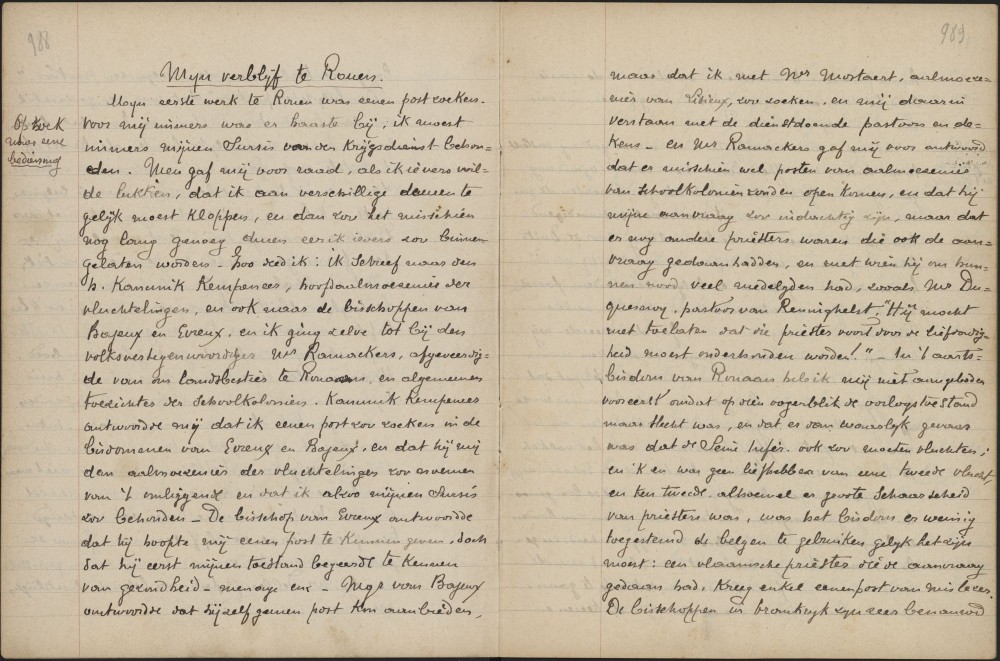 988
Mijn verblijf te Rouen.
Op zoek
naar eene
bediening
Mijn eerste werk te Rouen was eenen post zoeken.
voor mij immers was er haaste bij, ik moest
immers mijnen Sursis van den krijgsdienst behou-
den. Men gaf mij voor raad, als ik ievers wil-
de lukken, dat ik aan verschillige deuren te
gelijk moest kloppen, en dan zou het misschien
nog lang genoeg duren eer ik ievers zou binnen
gelaten worden - Zoo deed ik: ik schreef naar den
h. Kanunik Kempenees, hoofdaalmoesenier der
vluchtelingen, en ook naar de bisschoppen van
Bajeux en Evreux. en ik ging zelve tot bij den
volksvertegenwoordiger Mr Ramaekers, afgeveerdig-
de van ons landsbestier te Rouaan, en algemeenen
toezichter der Schoolkoloniën. Kanunik Kempenees
antwoordde mij dat ik eenen post zou zoeken in de
bisdommen van Evreux en Bajeux, en dat hij mij
dan aalmoezenier der vluchtelingen zou noemen
van 't omliggende en dat ik alzoo mijnen Sursis
zou behouden - De bisschop van Evreux antwoordde
dat hij hoopte mij eenen post te kunnen geven, doch
dat hij eerst mijnen toestand begeerde te kennen
van gezondheid - menage enz - Mgr van Bajeux
antwoordde dat hij zelf geenen post kon aanbieden,
989
maar dat ik met Mr Mostaert, aalmoeze-
nier van Lisieux, zou zoeken. en mij daarin
verstaan met de dienstdoende pastoors en de-
kens - en Mr Ramaekers gaf mij voor antwoord
dat er misschien wel posten van aalmoesenier
van schoolkoloniën zouden open komen, en dat hij
mijne aanvraag zou indachtig zijn, maar dat
er nog andere priesters waren die ook de aan-
vraag gedaan hadden, en met wien hij om hun-
nen nood veel medelijden had, zooals Mr Du-
quesnoy, pastoor van Reninghelst. "Hij mocht
niet toelaten dat die priester voort door de liefdadig-
heid moest onderhouden worden!" - In 't aarts-
bisdom van Rouaan heb ik mij niet aangeboden
vooreerst omdat op dien oogenblik de oorlogstoestand
maar slecht was, en dat er van waarlijk gevaar
was dat de Seine Infér. ook zou moeten vluchten;
en 'k en was geen liefhebber van eene tweede vlucht,
en ten tweede. alhoewel er groote schaarscheid
van priesters was, was het bisdom er weinig
toegestemd de belgen te gebruiken gelijk het zijn
moest: een vlaamsche priester die de aanvraag
gedaan had, kreeg enkel eenen post van mislezer.
De bisschoppen in frankrijk zijn zeer benauwd